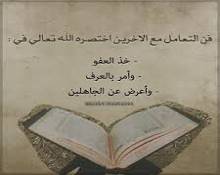 فن التعامل مع الآخرين اختصره الله تعالي في :
- خذ العفو
- وأمر بالعرف
- وأعرض عن الجاهلين